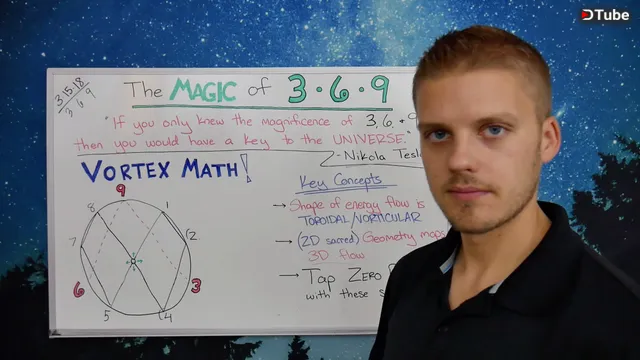 DTube
3·15·18
3 6 9
The MAGIC of 3·6·9
"If you only knew the magnificence of 3, 6, +
then you would have a key to the UNIVERSE."
- Nikola Tesl
VORTEX MATH!
Key Concepts
→ Shape of energy flow is
TOROIDAL/VORTICULAR
→ (2D sacred) Geometry maps
3D flow
→ TAP ZERO
with these
9
8 1
7 2
6 3
5 4